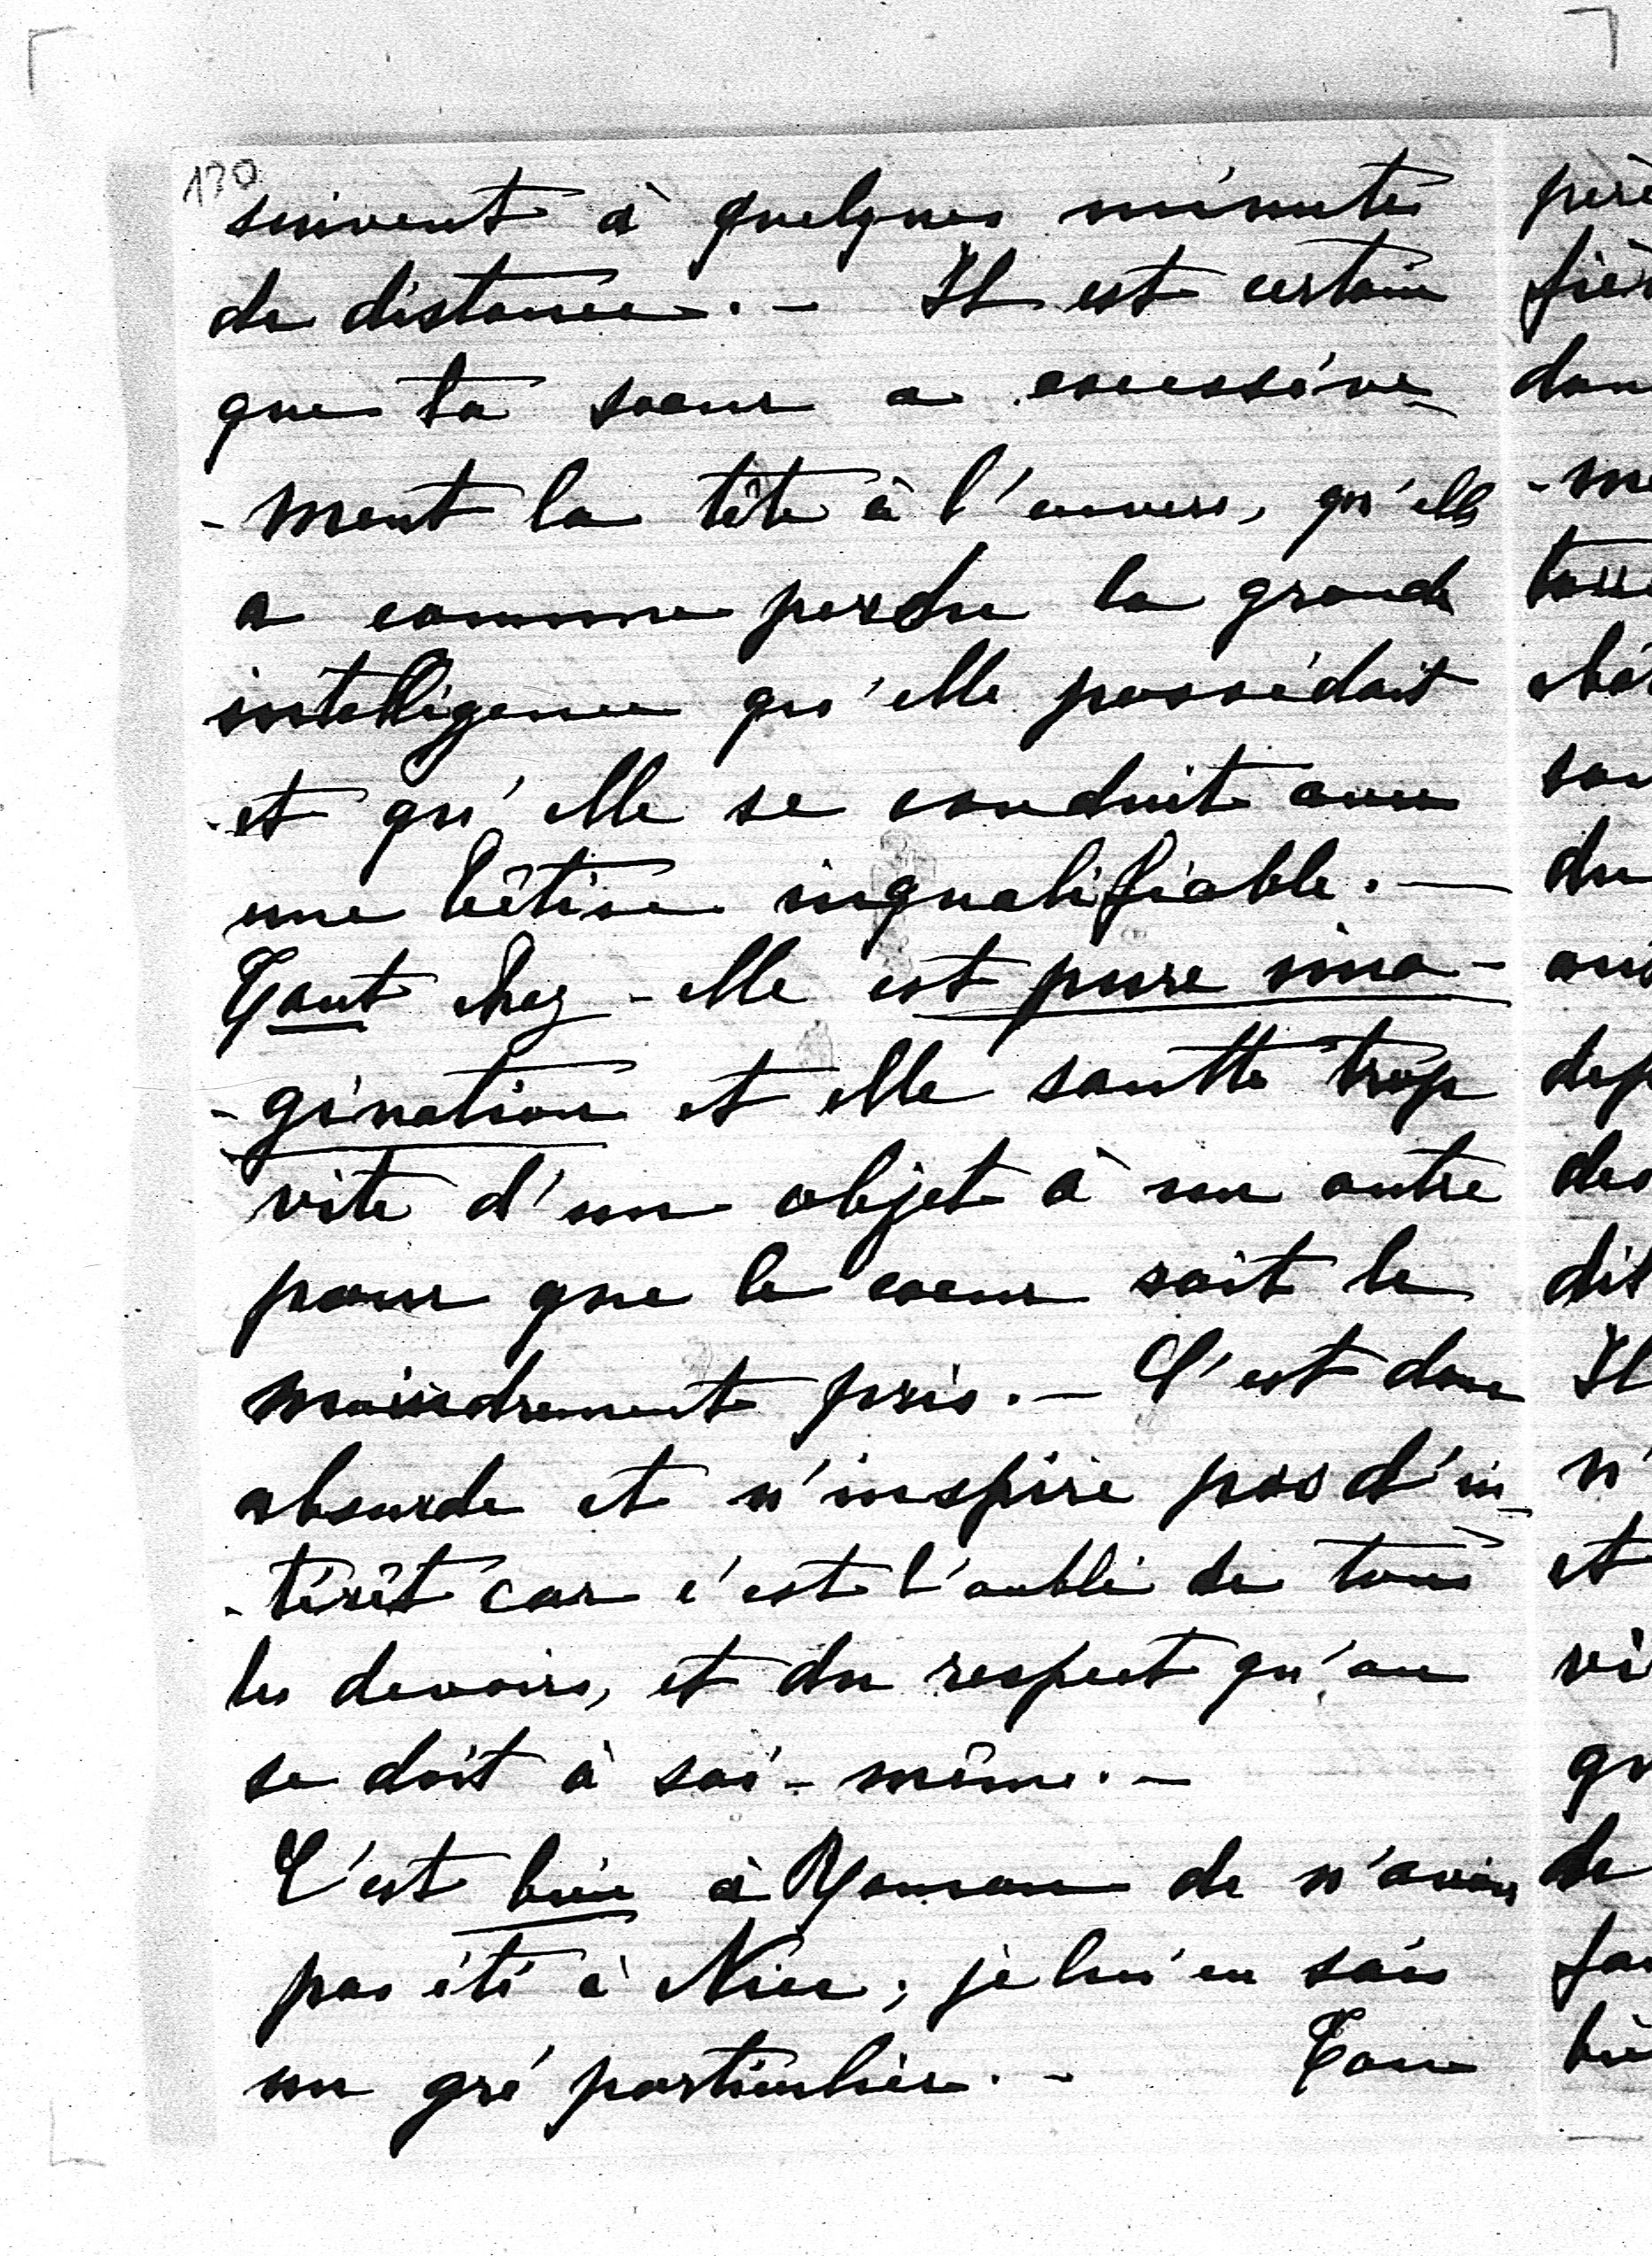 130
suivent à quelques minutes
de distance. - Il est certain
que ta soeur a excessive-
-ment la tête à l'envers, qu'elle
a comme perdu la grande
intelligence qu'elle possédait
et qu'elle se conduit avec
une bêtise inqualifiable. -
Tout chez-elle est pure ima-
-gination et elle sautte trop
vite d'un objet à un autre
pour que le coeur soit le
moindrement pris. - C'est donc
absurde et n'inspire pas d'in-
-térêt car c'est l'oubli de tous
les devoirs, et du respect qu'on
se doit à soi-même. -
C'est bien à de n'avoir
pas été à Nice; je lui en sais
un gré particulier. -
père
dan
-me
sou
du
dep
des
dit
Il
n'
et
vi
qu
de